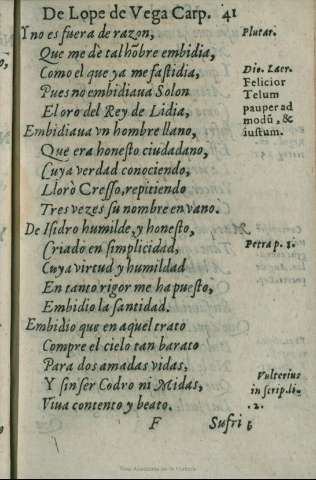 De Lope de Vega Carp. 41
Y no es fuera de razon,
Que me dè tal hõbre embidia,
Como el que ya me fastidia,
Pues no embidiaua Solon
El oro del Rey de Lidia,
Embidiaua vn hombre llano,
Que era honesto ciudadano,
Cuya verdad conociendo,
Llorò Cresso, repitiendo
Tres vezes su nombre en vano.
De Isidro humilde, y honesto,
Criado en simplicidad,
Cuya virtud y humildad
En tanto rigor me ha puesto,
Embidio la santidad.
Embidio que en aquel trato
Compre el cielo tan barato
Para dos amadas vidas,
Y sin ser Codro ni Midas,
Viua contento y beato.
F Sufri
Plutar.
Dio. Laer.
Felicior
Telum
pauper ad
modũ, &
iustum.
Petra p. 1.
Vulterius
in scrip. li.
.2.
Real Academia de la Historia